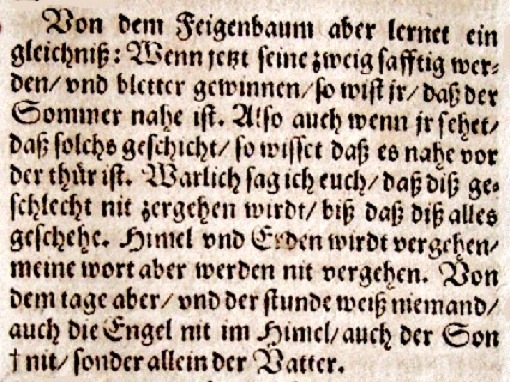 Von dem Feigenbaum aber lernet ein
gleichniß: Wenn jetzt seine zweig safftig wer⸗
den/ vnd bletter gewinnen/ so wist jr/ daß der
Sommer nahe ist. Also auch wenn jr sehet/
daß solchs geschicht/ so wisset daß es nahe vor
der thür ist. Warlich sag ich euch/ daß diß ge⸗
schlecht nit zergehen wirdt/ biß daß diß alles
geschehe. Himel vnd Erden wirdt vergehen/
meine wort aber werden nit vergehen. Von
dem tage aber/ vnd der stunde weiß niemand/
auch die Engel nit im Himel/ auch der Son
† nit/ sonder allein der Vatter.